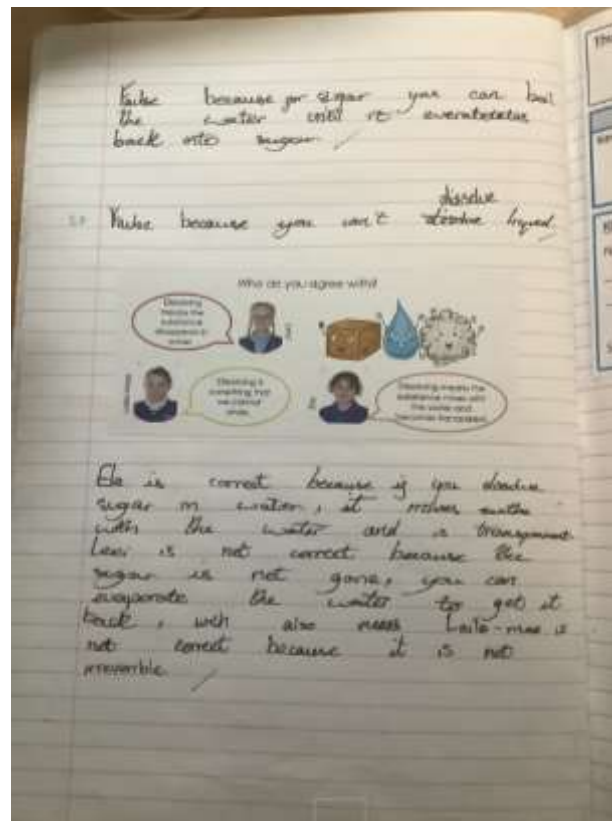 False because for sugar you can boil
the water until it
back into sugar.
dissolve
False because you can't dissolve liquid
Who do you agree with?
Dissolving
means the
substance
disappears in
water.
Dissolving is
something that
we cannot
undo.
Dissolving means the
substance mixes with
the water and
becomes transparent.
Ela is correct because if you dissolve
sugar in water, it mixes
with the water and is transparent.
is not correct because the
sugar is not gone, you can
evaporate the water to get it
back, wich also means Laila-mae is
not correct because it is not
irreversible.